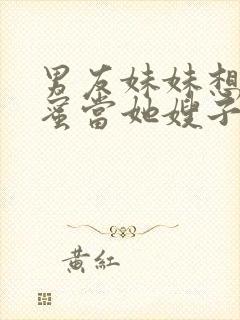 男友妹妹想
蜜當她嫂子
黃紅